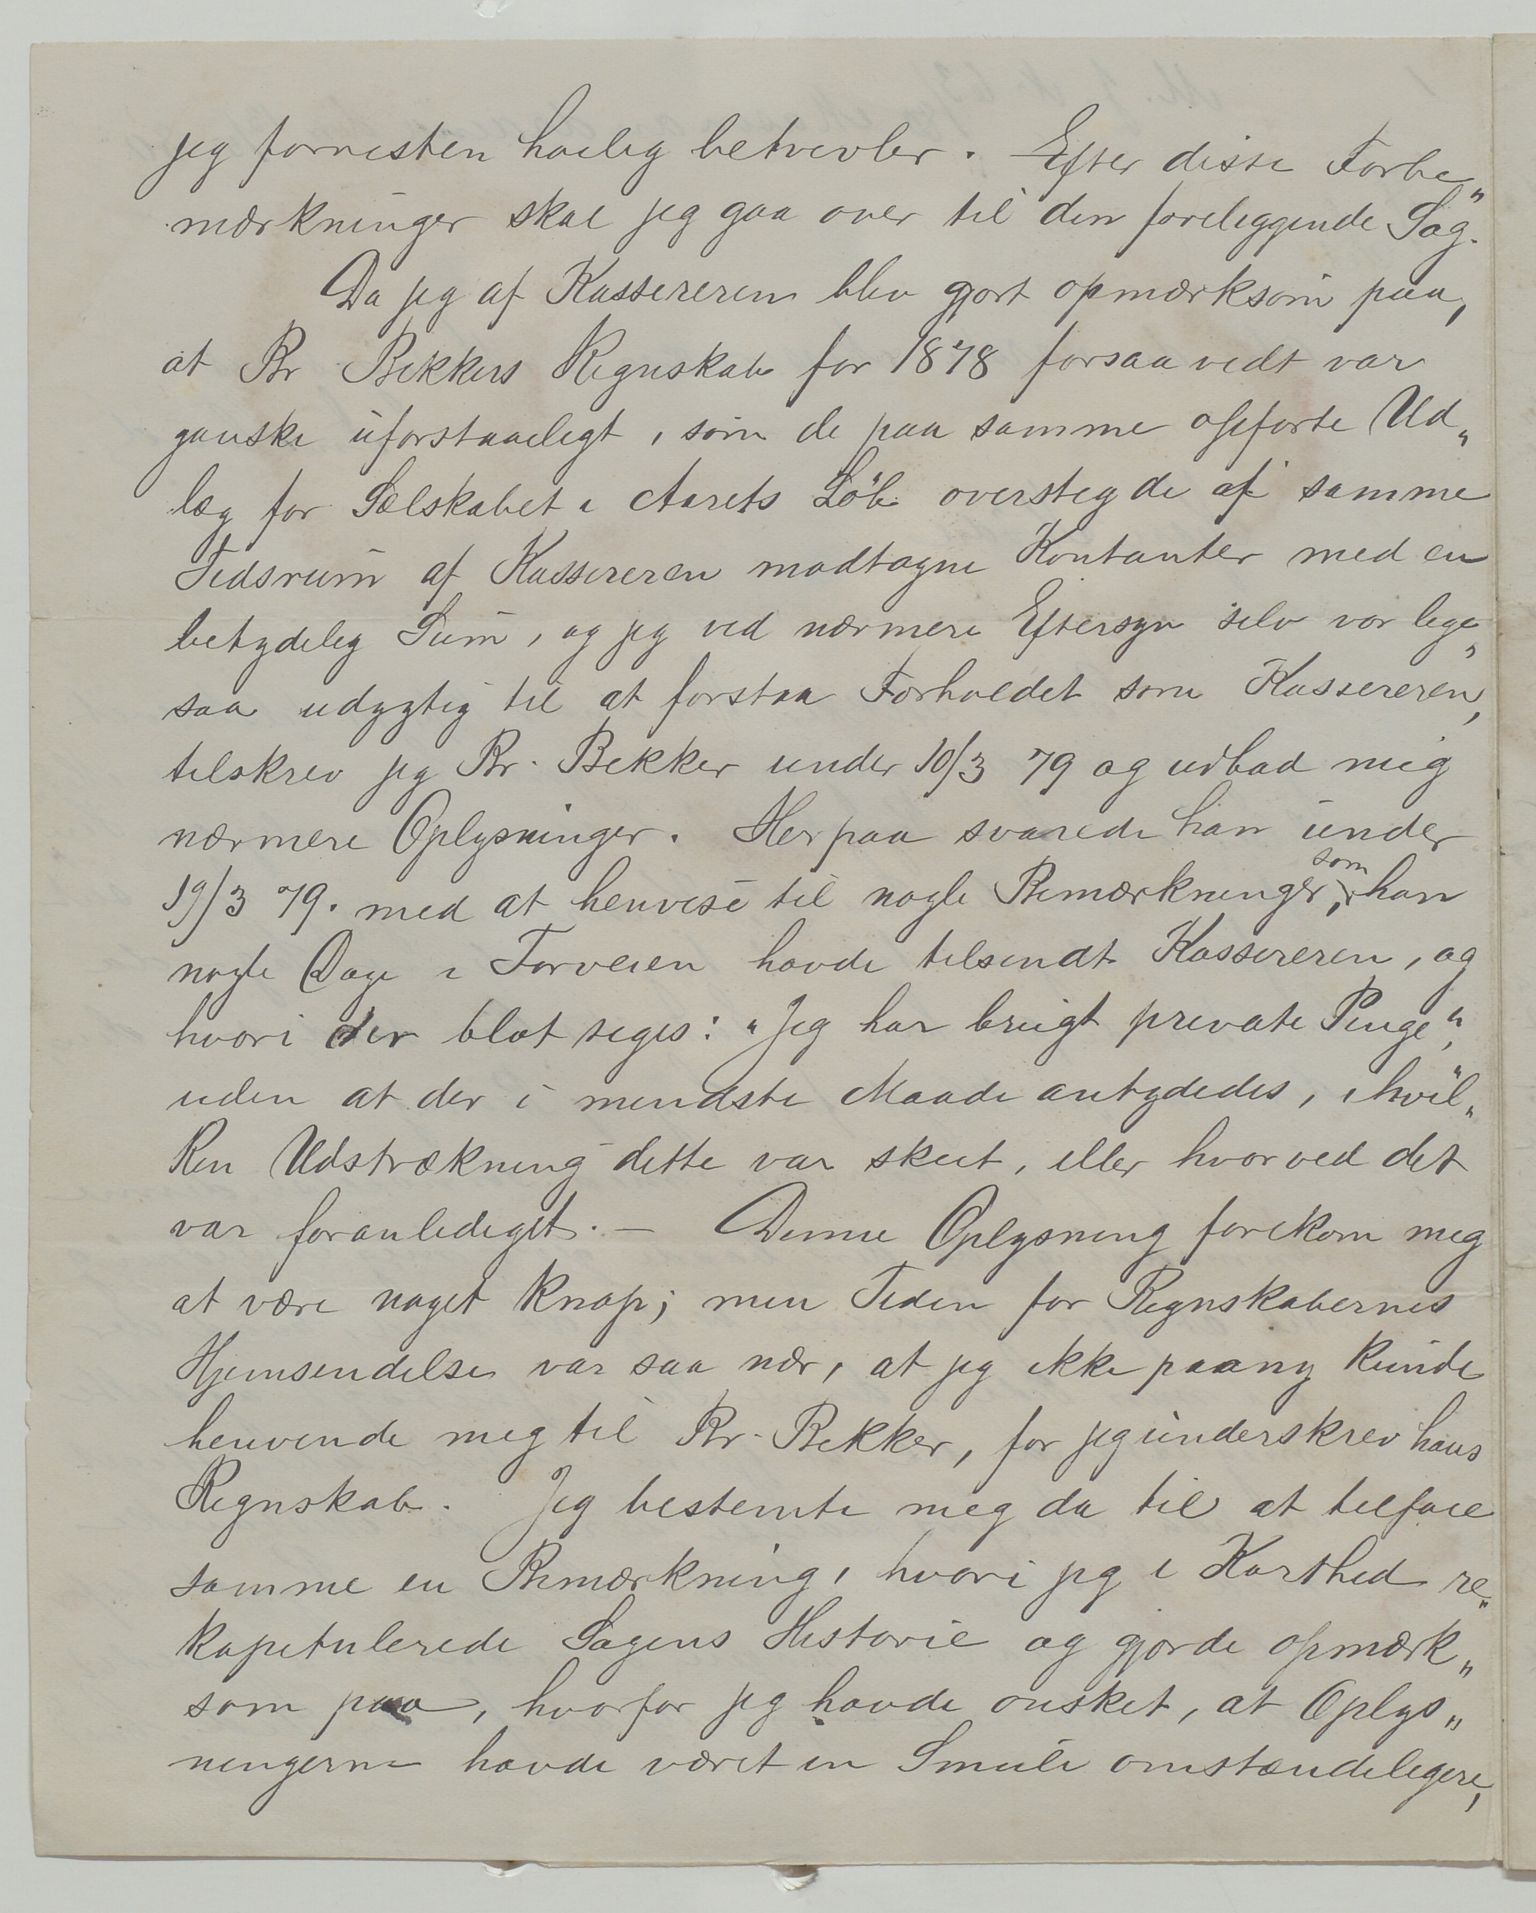 jeg forresten høilig betvivler. Efter disse Forbe„
mærkninger skal jeg gaa over til den foreliggende Sag.
Da jeg af Kassereren blev gjort opmærksom paa,
at Br. Bekkers Regnskab for 1878 forsaavidt var
ganske uforstaaeligt, som de paa samme opførte Ud„
læg for Selskabet i Aarets Löb oversteg de af samme
Tidsrum af Kassereren modtagne Kontanter med en
betydelig Sum, og jeg ved nærmere Eftersyn selv var lige„
saa udygtig til at forstaa Forholdet som Kassereren,
tilskrev jeg Br. Bekker under 10/3 79 og udbad mig
nærmere Oplysninger. Herpaa svarede han under
19/3 79. med at henvise til nogle Bemærkninger, som han
nogle Dage i Forveien havde tilsendt Kassereren, og
hvori der blot siges: „Jeg har brugt private Penge“,
uden at der i mindste Maade antydedes, i hvil„
ken Udstrækning dette var skeet, eller hvorved det
var foranlediget. — Denne Oplysning forekom mig
at være noget knap; men Tiden for Regnskabernes
Hjemsendelse var saa nær, at jeg ikke paany kunde
henvende mig til Br. Bekker, før jeg underskrev hans
Regnskab. Jeg bestemte mig da til at tilføie
samme en Bemærkning, hvori jeg i Korthed re„
kapitulerede Sagens Historie og gjorde opmærk„
som paa, hvorfor jeg havde ønsket, at Oplys„
ningerne havde været en Smule omstændeligere,